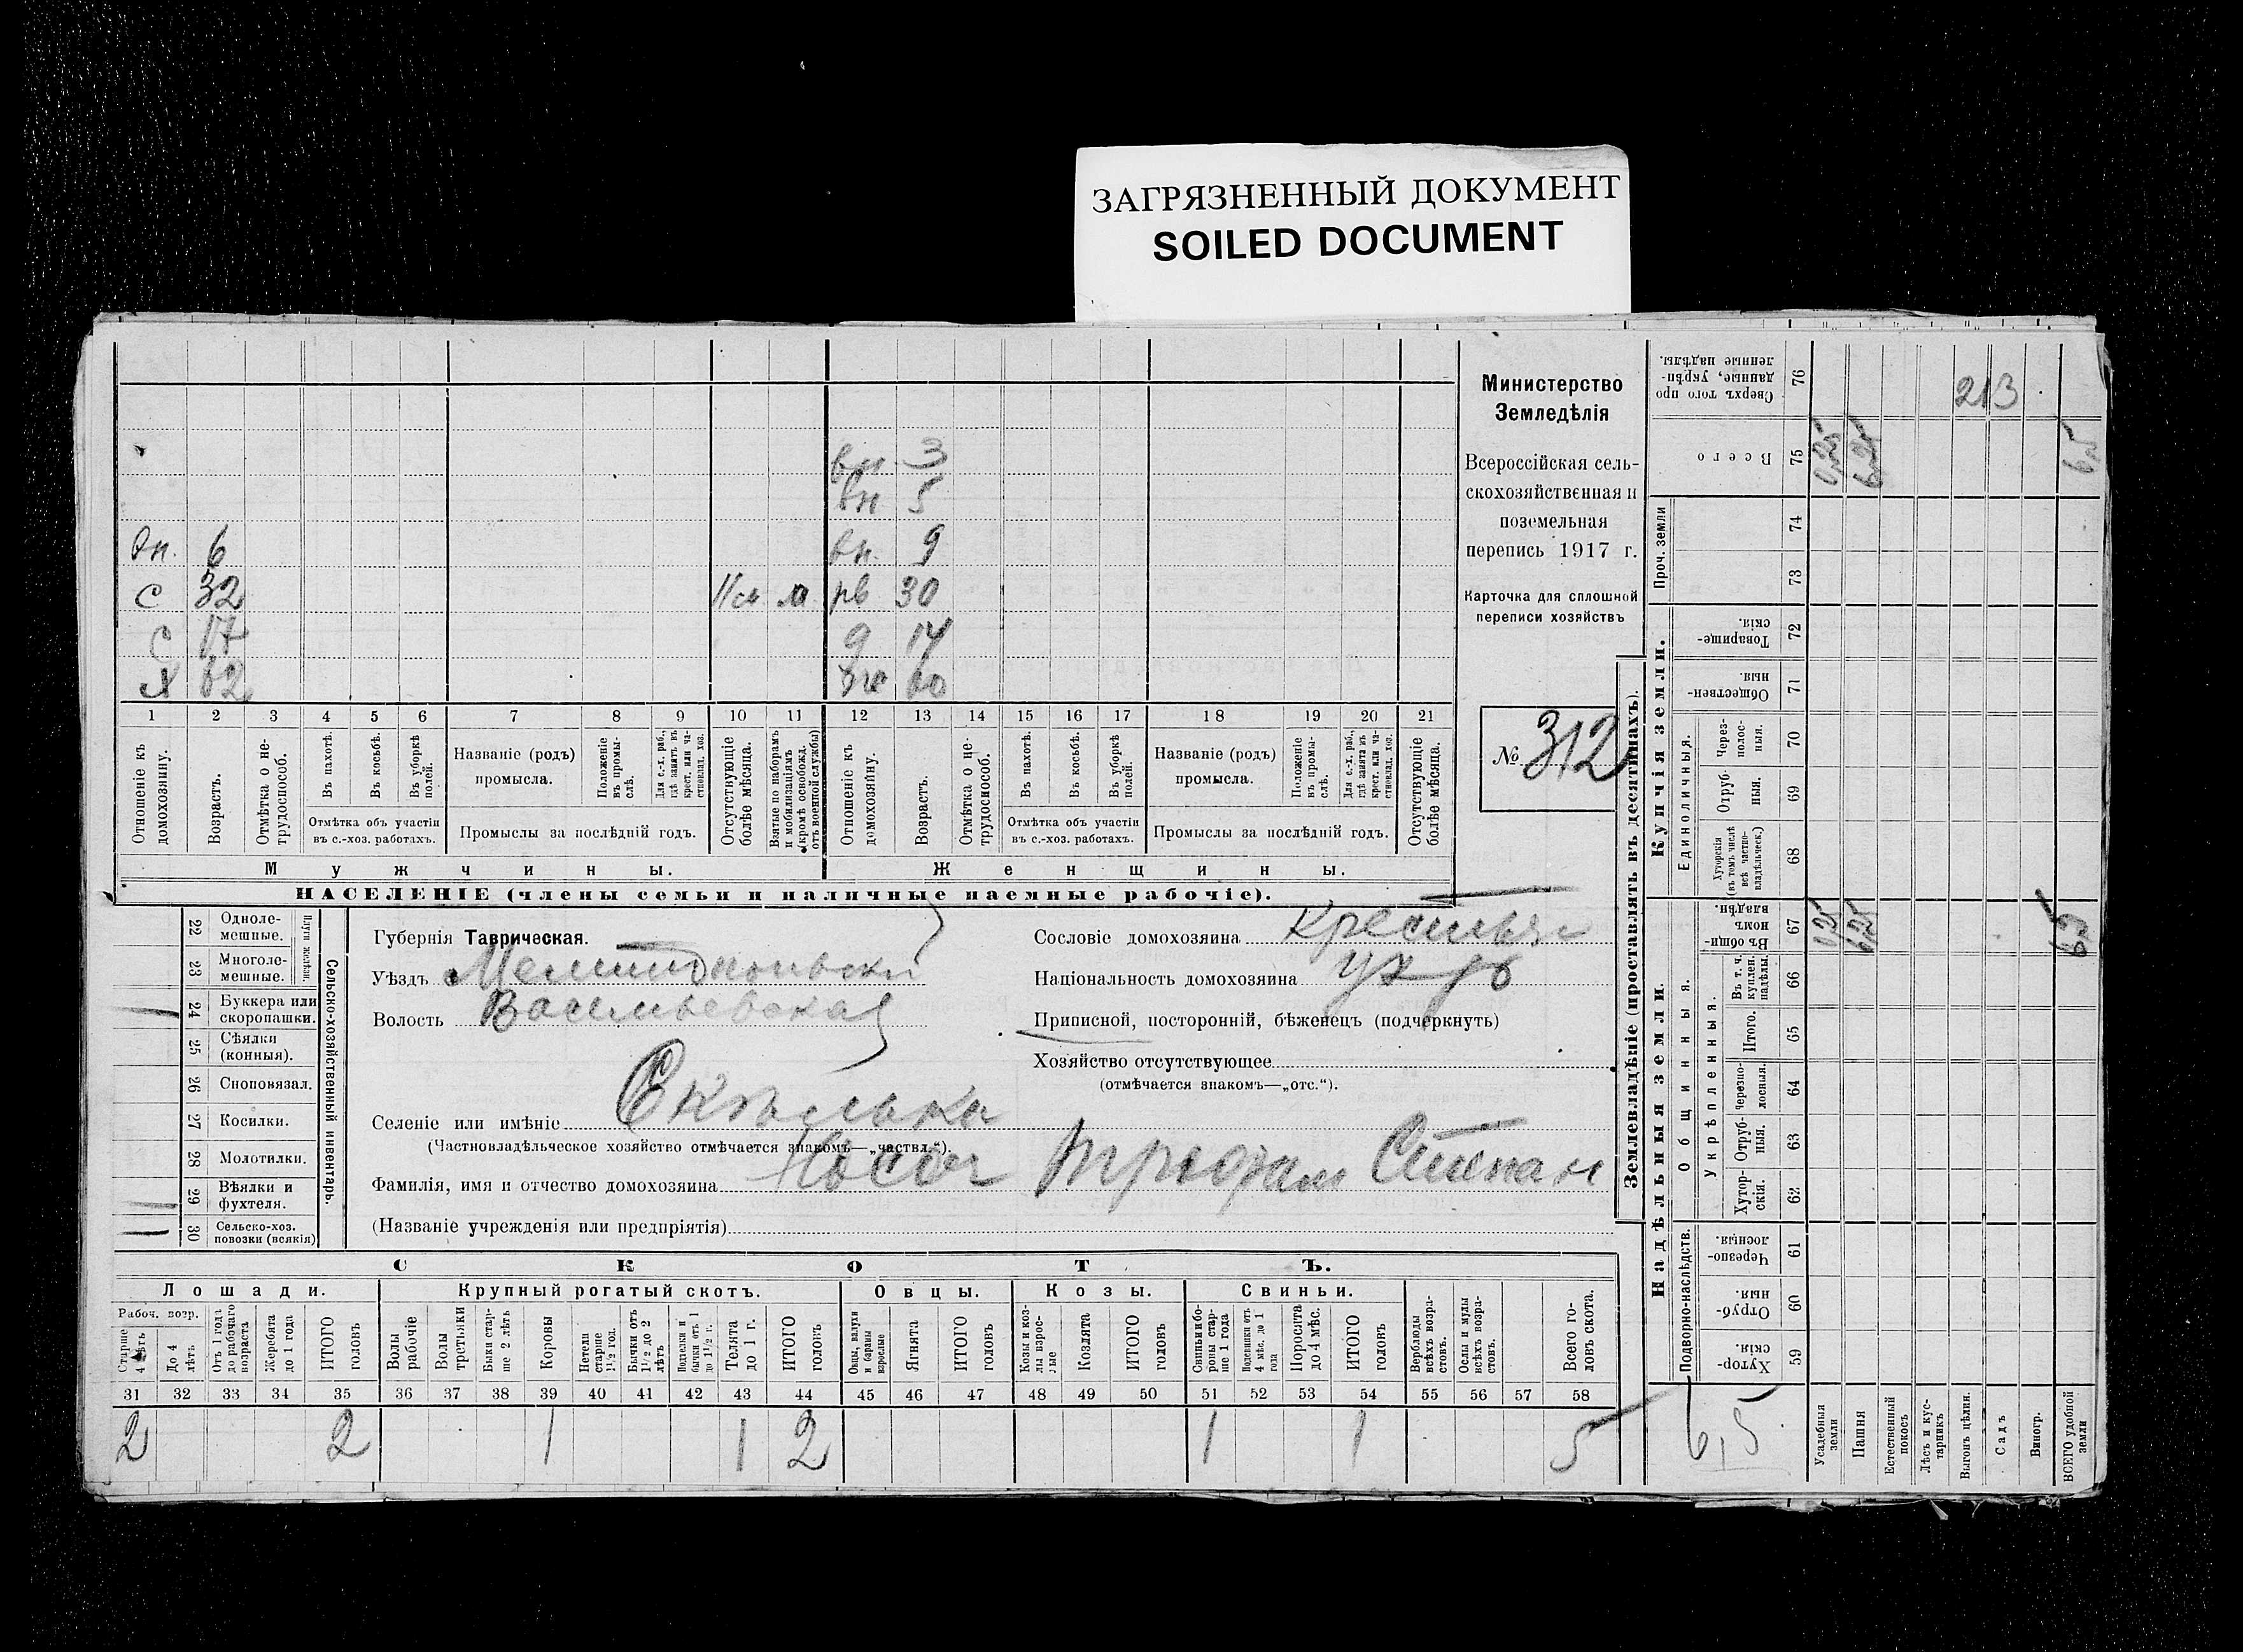 ЗАГРЯЗНЕННЫЙ ДОКУМЕНТ
SOILED DOCUMENT
вн. 3
вн 5
вн. 6 вн. 9
с 32 м рв 30
с 17 д 14
х 62 же 60
1 2 3 4 5 6 7 8 9 10 11 12 13 14 15 16 17 18 19 20 21
Отношеніе къ домохозяину.
Возрастъ.
Отмѣтка о нетрудоспособ.
Въ пахотѣ.
Въ косьбѣ.
Въ уборкѣ полей.
Отмѣтка объ участіи въ с.-хоз. работахъ.
Названіе (родъ) промысла.
Положеніе въ промыслѣ.
Для с.-х. раб., гдѣ занятъ въ крест. или частновлад. хоз.
Промыслы за послѣдній годъ.
Отсутствующіе болѣе мѣсяца.
Взятые по наборамъ и мобилизаціямъ (кромѣ освобожд. отъ военной службы)
Отношеніе къ домохозяйну.
Возрастъ.
Отмѣтка о нетрудоспособ.
Въ пахотѣ.
Въ косьбѣ.
Въ уборкѣ полей.
Отмѣтка объ участіи въ с.-хоз. работахъ.
Названіе (родъ) промысла.
Положеніе въ промыслѣ.
Для с.-х. раб., гдѣ занятъ въ крест. или частновлад. хоз.
Промыслы за послѣдній годъ.
Отсутствующіе болѣе мѣсяца.
Мужчины. Женщины.
НАСЕЛЕНІЕ (члены семьи и наличные наемные рабочіе).
Министерство
Земледѣлія
Всероссійская сель-
скохозяйственная и
поземельная
перепись 1917 г.
Карточка для сплошной
переписи хозяйствъ
№ 312
22 Одноле-мешные.
23 Многоле-мешные.
Плуги желѣзн.
24 Буккера или скоропашки.
25 Сѣялки (конныя).
26 Сноповязал.
27 Косилки.
28 Молотилки.
29 Вѣялки и фухтеля.
30 Сельско-хоз. повозки (всякія)
Сельско-хозяйственный инвентарь.
Губернія Таврическая.
Уѣздъ Мелитопольскі
Волость Васильевская
Селеніе или имѣніе
(Частновладѣльческое хозяйство отмѣчается знакомъ—„частвл.“).
Фамилія, имя и отчество домохозяина Носач Трофим Степан
(Названіе учрежденія или предпріятія)
Сословіе домохозяина Крестьян
Національность домохозяина
Приписной, посторонній, бѣженецъ (подчеркнуть)
Хозяйство отсутствующее
(отмѣчается знакомъ—„отс.“).
СКОТЪ.
Лошади. Крупный рогатый скотъ. Овцы. Козы. Свиньи.
Рабоч. возр.
Старше 4 лѣтъ
До 4 лѣтъ
Отъ 1 года до рабочаго возраста
Жеребята до 1 года
ИТОГО головъ
Волы рабочіе
Волы третьяки
Быки старше 2 лѣтъ
Коровы
Нетели старше 1½ год.
Бычки отъ 1½ до 2 лѣтъ
Подтелки и бычки отъ 1 до 1½ г.
Телята до 1 г.
ИТОГО головъ
Овцы, валухи и бараны взрослые
Ягнята
ИТОГО головъ
Козы и козлы взрослые
Козлята
ИТОГО головъ
Свиньи и бороны старше 1 года
Подсвинки отъ 4 мѣс. до 1 года
Поросята до 4 мѣс.
ИТОГО головъ
Верблюды всѣхъ возрастовъ.
Ослы и мулы всѣхъ возрастовъ.
Всего головъ скота.
31 32 33 34 35 36 37 38 39 40 41 42 43 44 45 46 47 48 49 50 51 52 53 54 55 56 57 58
2 2 1 1 2 1 1 5
Землевладѣніе (проставлять въ десятинахъ).
Сверхъ того проданные, укрѣпленные надѣлы. 76 213
Всего 75 0,25 6,25 6,5
Проч. земли 74
73
Купчія земли.
Товарищескія. 72
Общественныя. 71
Единоличныя.
Черезполосныя. 70
Отрубныя. 69
Хуторскія (въ томъ числѣ всѣ частновладѣльческ.) 68
Надѣльныя земли.
Общинныя.
Въ общинномъ владѣн. 67 0,25 6,25 6,5
Укрѣпленныя.
Въ т. ч. куплен. надѣлы. 66
Итого. 65
Черезполосныя. 64
Отрубныя. 63
Хуторскія. 62
Подворно-наслѣдств.
Черезполосныя. 61
Отрубныя. 60
Хуторскія. 59
6,5
Усадебныя земли
Пашня
Естественный покосъ
Лѣсъ и кустарникъ
Выгонъ цѣлин.
Садъ
Виногр.
ВСЕГО удобной земли